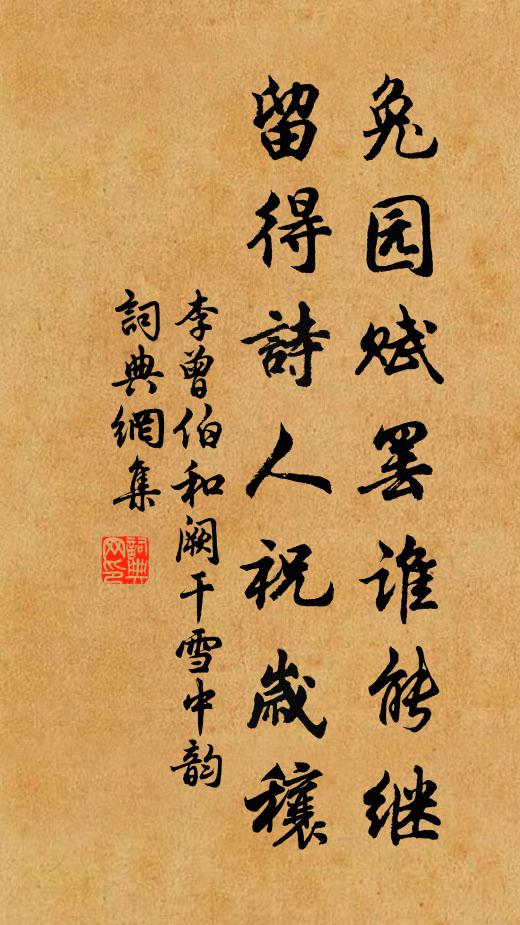 兔园赋罢谁能继
留得詩人祝歲穰
李曾伯和阙干雪中韵
詞典網集
詞典网印